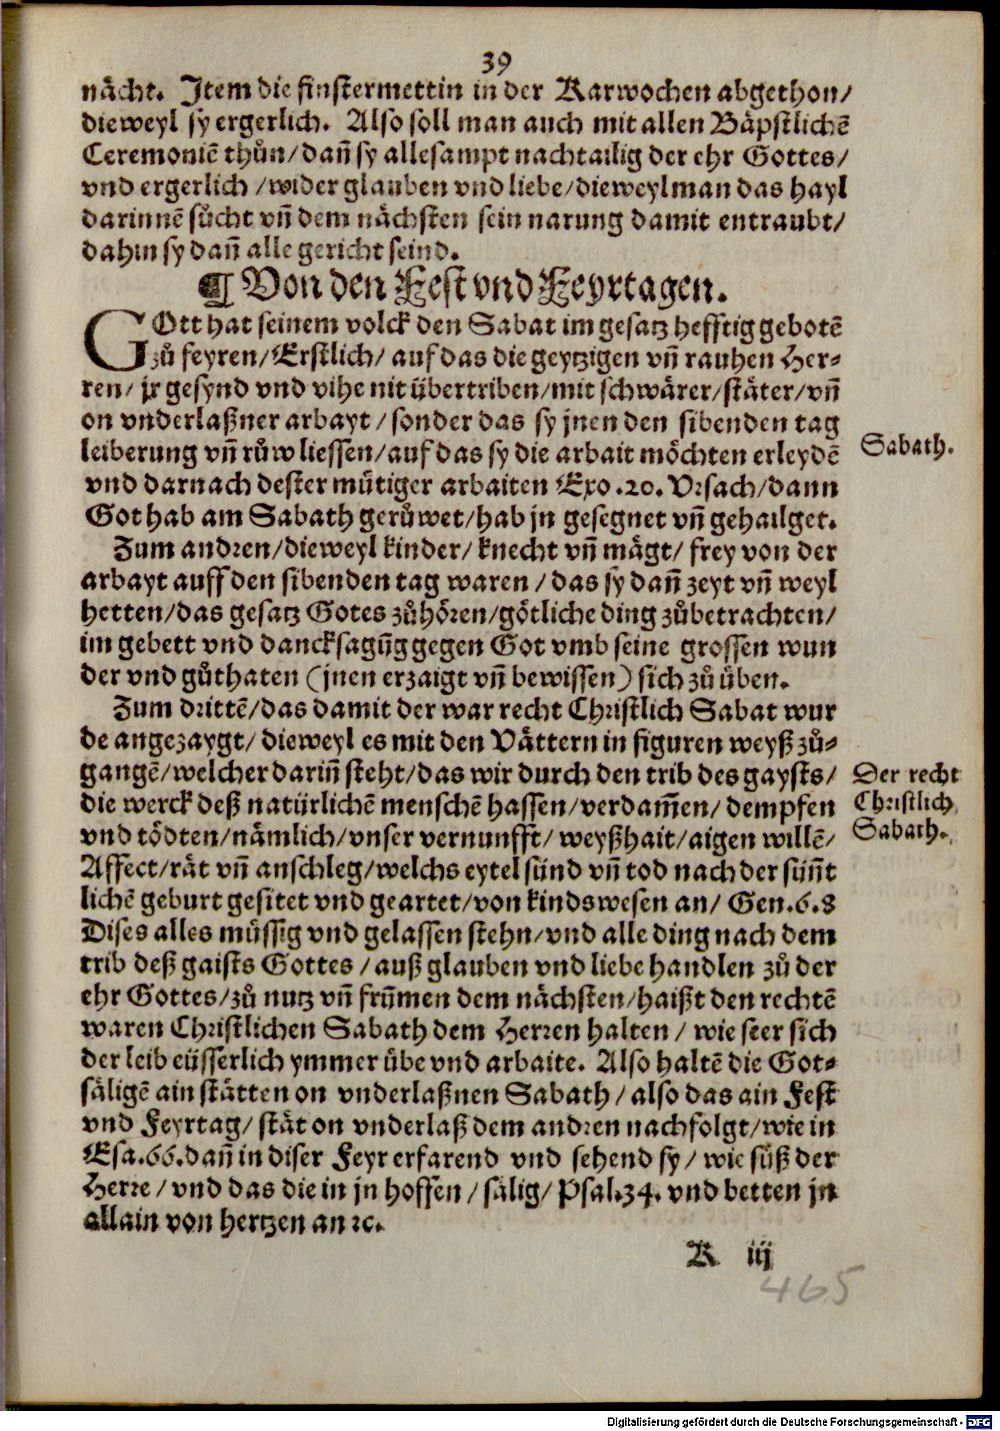 39
nåcht. Item die finstermettin in der Karwochen abgethon/
dieweyl sy ergerlich. Also soll man auch mit allen Båpstlichē
Ceremoniē thůn/dañ sy allesampt nachtailig der ehr Gottes/
vnd ergerlich/wider glauben vnd liebe/dieweyl man das hayl
darinnē sůcht vñ dem nåchsten sein narung damit entraubt/
dahin sy dañ alle gericht seind.
¶ Von den Fest vnd Feyrtagen.
GOtt hat seinem volck den Sabat im gesatz hefftig gebotē
zů feyren/Erstlich/auf das die geytzigen vñ rauhen Her-
ren/jr gesynd vnd vihe nit übertriben/mit schwårer/ståter/vñ
on vnderlaßner arbayt/sonder das sy jnen den sibenden tag
leiberung vñ růw liessen/auf das sy die arbait möchten erleydē
vnd darnach dester mütiger arbaiten Exo.20. Vrsach/dann
Got hab am Sabath gerůwet/hab jn gesegnet vñ gehailget.
Zum andren/dieweyl kinder/knecht vñ mågt/frey von der
arbayt auff den sibenden tag waren/das sy dañ zeyt vñ weyl
hetten/das gesatz Gotes zůhören/götliche ding zůbetrachten/
im gebett vnd dancksagūg gegen Got vmb seine grossen wun
der vnd gůthaten (jnen erzaigt vñ bewissen) sich zů üben.
Zum drittē/das damit der war recht Christlich Sabat wur
de angezaygt/dieweyl es mit den Våttern in figuren weyß zů-
gangē/welcher dariñ steht/das wir durch den trib des gaysts/
die werck deß natürlichē menschē hassen/verdam̄en/dempfen
vnd tödten/nåmlich/vnser vernunfft/weyßhait/aigen willē/
Affect/råt vñ anschleg/welchs eytel sünd vñ tod nach der süñt
lichē geburt gesitet vnd geartet/von kindswesen an/Gen.6.8
Dises alles müssig vnd gelassen stehn/vnd alle ding nach dem
trib deß gaists Gottes/auß glauben vnd liebe handlen zů der
ehr Gottes/zů nutz vñ frūmen dem nåchsten/haißt den rechtē
waren Christlichen Sabath dem Herren halten/wie seer sich
der leib eüsserlich ymmer übe vnd arbaite. Also haltē die Got-
såligē ain ståtten on vnderlaßnen Sabath/also das ain Fest
vnd Feyrtag/ståt on vnderlaß dem andren nachfolgt/wie in
Esa.66.dañ in diser Feyr erfarend vnd sehend sy/wie süß der
Herre/vnd das die in jn hoffen/sålig/Psal.34. vnd betten jn
allain von hertzen an ꝛc.
Sabath.
Der recht
Christlich
Sabath.
K iij
465
Digitalisierung gefördert durch die Deutsche Forschungsgemeinschaft - DFG